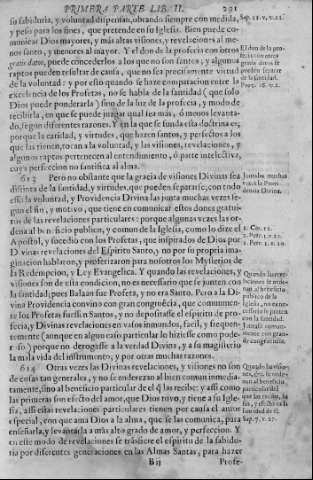 PRIMERA PARTE LIB. II. 291
su sabiduria, y voluntad dispensar, obrando siempre con medida,
y peso para los fines, que pretende en su Iglesia. Bien puede co-
municar Dios mayores, y mas altas visiones, y revelaciones al me-
nos santo, y menores al mayor. Y el don de la profecia con otros
gratis datos, puede concederlos a los que no son santos; y algunos
raptos pueden resultar de causa, que no sea precisamente virtud
de la voluntad: y por esto quando se haze comparacion entre la
excelencia de los Profetas, no se habla de la santidad (que solo
Dios puede ponderarla) sino de la luz de la profecia, y modo de
recibirla, en que se puede juzgar qual sea mas, ò menos levanta-
do, segun diferentes razones. Y en la que se funda esta doctrina es;
porque la caridad, y virtudes, que hazen santos, y perfectos à los
que las tienen, tocan a la voluntad, y las visiones, revelaciones, y
algunos raptos pertenecen al entendimiento, ò parte intelectiva,
cuya perfeccion no santifica al alma.
613 Pero no obstante que la gracia de visiones Divinas sea
distinta de la santidad, y virtudes, que pueden separarse, con todo
esso la voluntad, y Providencia Divina las junta muchas vezes se-
gun el fin, y motivo, que tiene en comunicar estos dones gratui-
tos de las revelaciones particulares: porque algunas vezes las or-
dena al beneficio publico, y comun de la Iglesia, como lo dize el
Apostol, y sucediò con los Profetas, que inspirados de Dios por
Divinas revelaciones del Espiritu Santo, y no por su propria ima-
ginacion hablaron, y profetizaron para nosotros los Mysterios de
la Redempcion, y Ley Evangelica. Y quando las revelaciones, y
visiones son de esta condicion, no es necessario que se junten con
la santidad; pues Balaan fue Profeta, y no era Santo. Pero a la Di-
vina Providencia convino con gran congruēcia, que comunmen-
te los Profetas fuessen Santos, y no depositasse el espiritu de pro-
fecia, y Divinas revelaciones en vasos inmundos, facil, y frequen-
temente (aunque en algun caso particular lo hiziesse como pode-
roso) porque no derogasse a la verdad Divina, y a su magisterio
la mala vida del instrumento; y por otras muchas razones.
614 Otras vezes las Divinas revelaciones, y visiones no son
de cosas tan generales, y no se enderezan al bien comun inmedia-
tamente, sino al beneficio particular de el q̃ las recibe: y assi como
las primeras son efecto del amor, que Dios tuvo, y tiene a su Igle-
sia, assi estas revelaciones particulares tienen por causa el amor
especial, con que ama Dios a la alma, que se las comunica, para
enseñarla, y levantarla a mas alto grado de amor, y perfeccion. Y
en este modo de revelaciones se trāsfiere el espiritu de la sabidu-
ria por diferentes generaciones en las Almas Santas, para hazer
Profe-
Sap. 11. v. 21.
El don de la pro-
fecia con otros
gratis datos se
pueden separar
de la santidad.
Juntalas muchas
vezes la Provi-
dencia Divina.